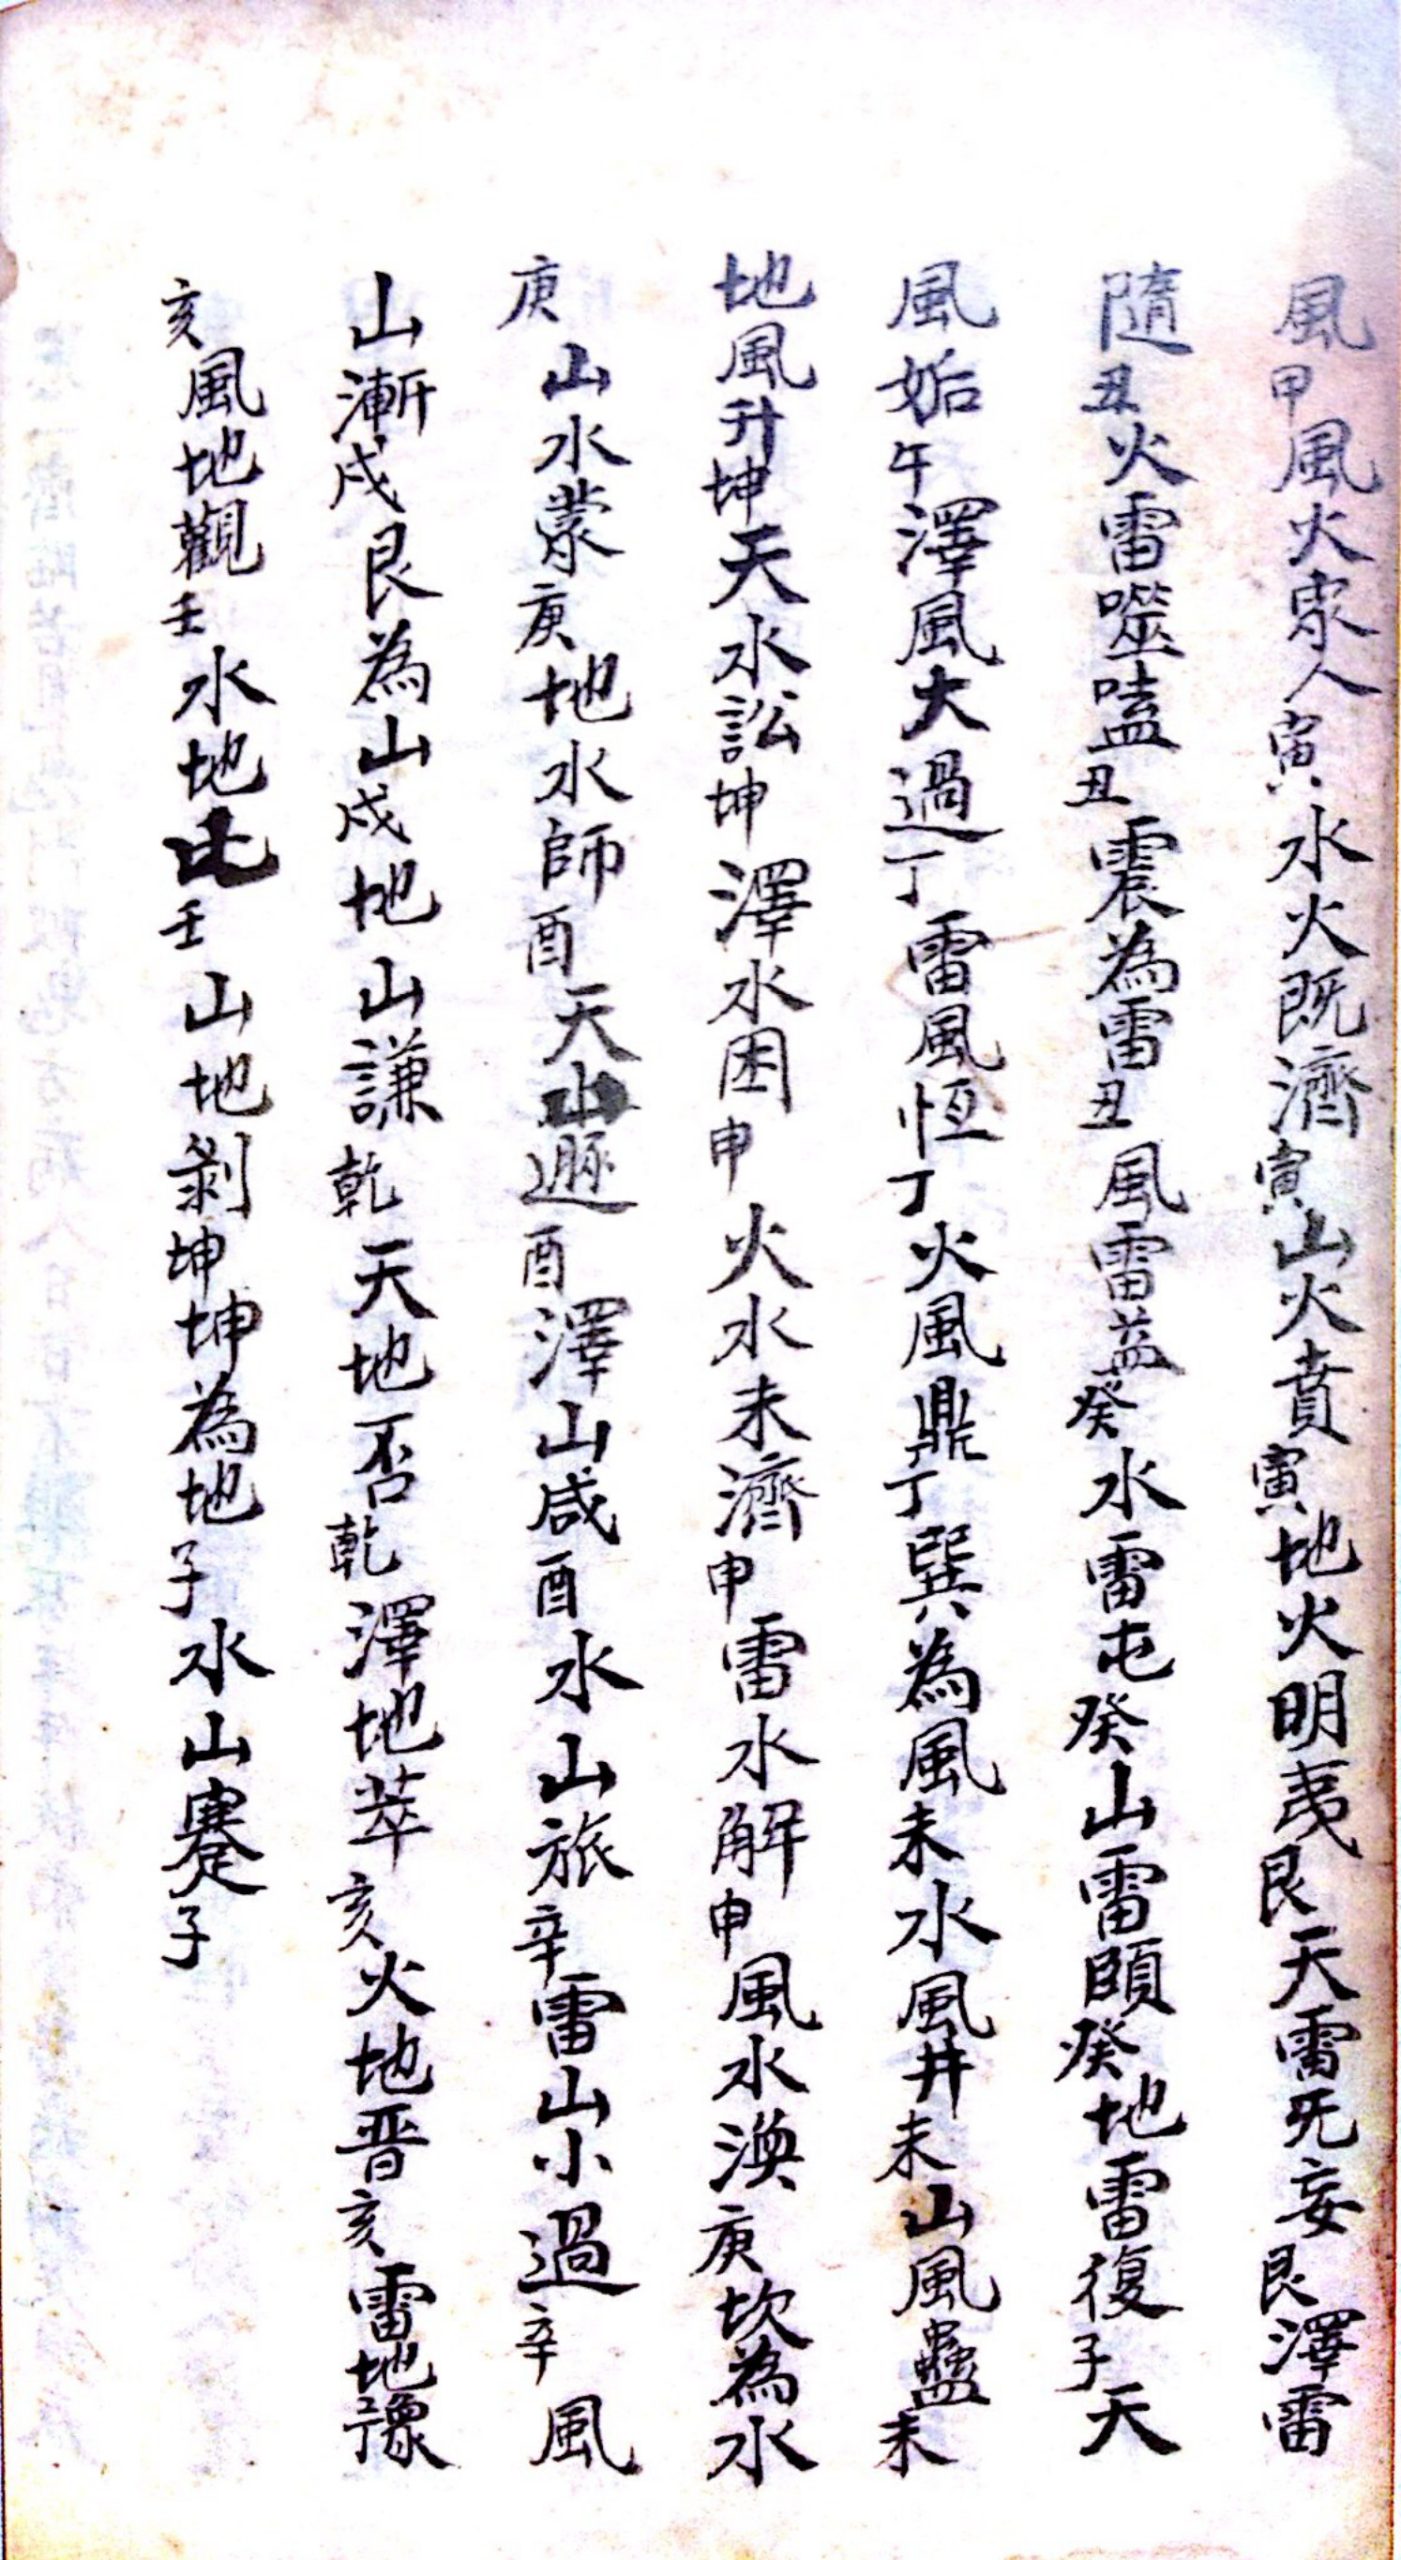 風甲風火家人寅水火既濟寅山火賁寅地火明夷艮天雷旡妄艮澤雷
隨丑火雷噬嗑丑震為雷丑風雷益癸水雷屯癸山雷頤癸地雷復子天
風姤午澤風大過丁雷風恆丁火風鼎丁巽為風未水風井未山風蠱未
地風升坤天水訟坤澤水困申火水未濟申雷水解申風水渙庚坎為水
庚山水蒙庚地水師酉天山遯酉澤山咸酉水山旅辛雷山小過辛風
山漸戌艮為山戌地山謙乾天地否乾澤地萃亥火地晋亥雷地豫
亥風地觀壬水地比壬山地剝坤坤為地子水山蹇子